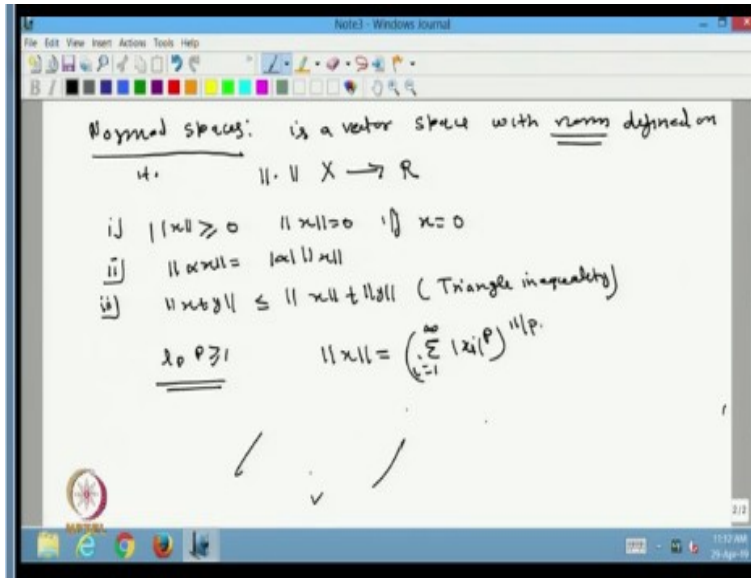 Note3 - Windows Journal
File Edit View Insert Actions Tools Help
B I
Normed spaces: is a vector space with norm defined on
it. ||.|| X → R
i) ||x|| ≥ 0 ||x||=0 if x=0
ii) ||αx|| = |α| ||x||
iii) ||x+y|| ≤ ||x|| + ||y|| (Triangle inequality)
lp p≥1 ||x|| = (∑_{i=1}^{∞} |xi|^p)^{1/p}.
2/2
11:12 AM
29-Apr-19